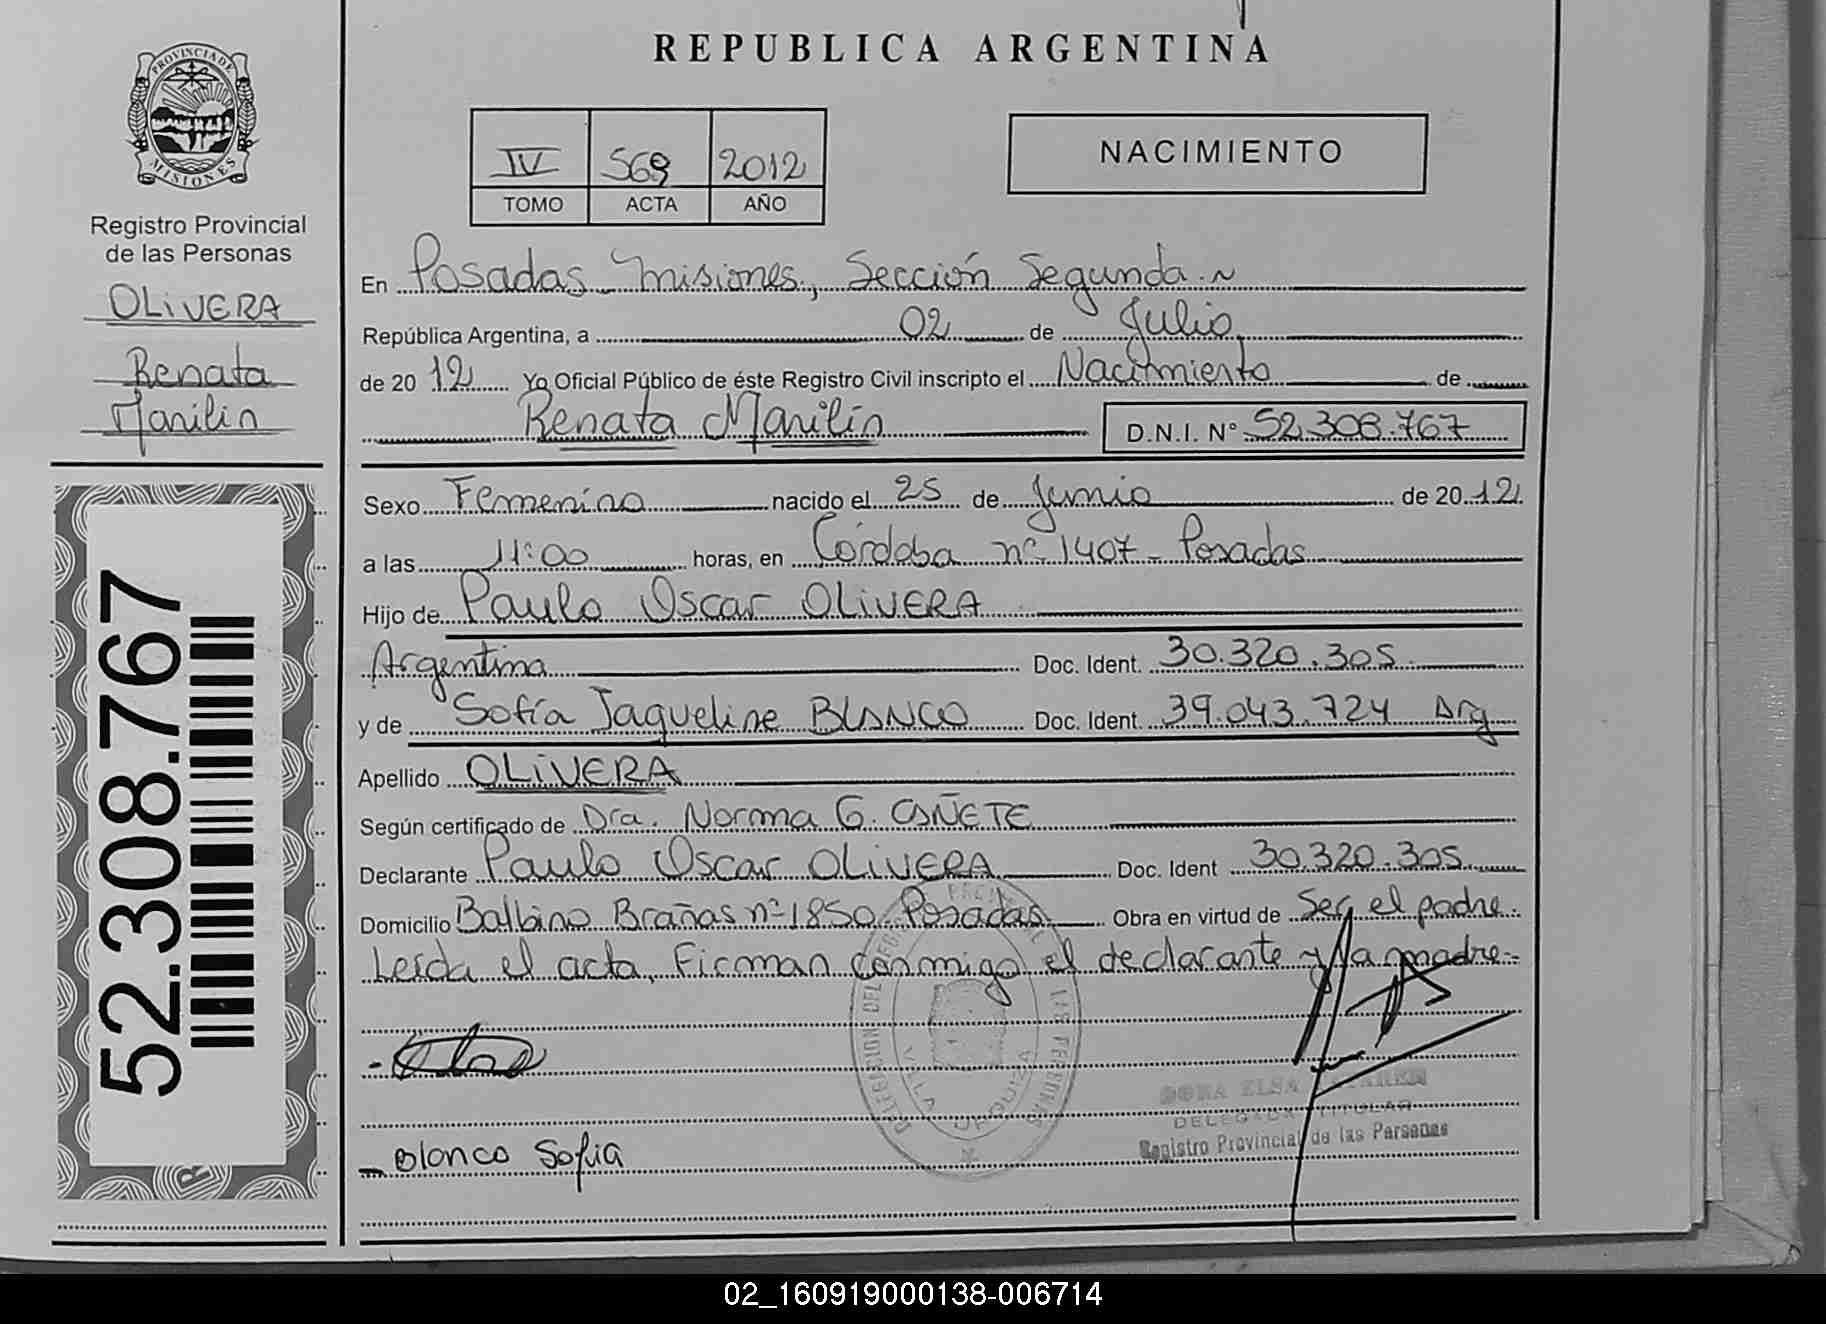 REPUBLICA ARGENTINA
PROVINCIA DE
MISIONES
Registro Provincial
de las Personas
OLIVERA
Renata
Marilin
52.308.767
IV 569 2012
TOMO ACTA AÑO
NACIMIENTO
En Posadas Misiones, Sección Segunda.~
República Argentina, a 02 de Julio
de 20 12 Yo Oficial Público de éste Registro Civil inscripto el Nacimiento de
Renata Marilin D.N.I. N° 52.308.767
Sexo Femenino nacido el 25 de Junio de 20 12
a las 11:00 horas, en Córdoba n° 1407 - Posadas
Hijo de Paulo Oscar OLIVERA
Argentina Doc. Ident. 30.320.305
y de Sofía Jaqueline BLANCO Doc. Ident. 39.043.724 Arg
Apellido OLIVERA
Según certificado de Dra. Norma G. CAÑETE
Declarante Paulo Oscar OLIVERA Doc. Ident 30.320.305
Domicilio Balbino Brañas n° 1850 Posadas Obra en virtud de Ser el padre.-
Leída el acta, Firman conmigo el declarante y la madre.-
DELEGACION DEL REGISTRO PRCIAL DE LAS PERSONAS
VILLA URQUIZA
ELSA
DELEGADA TITULAR
Registro Provincial de las Personas
Blanco Sofia
02_160919000138-006714